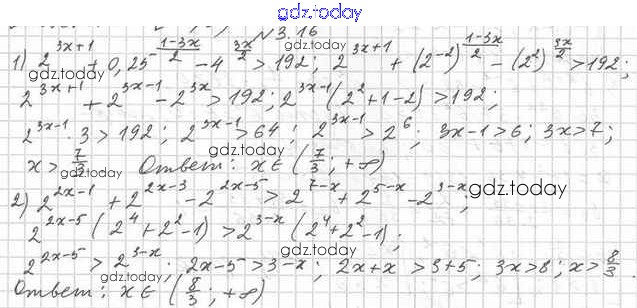 gdz.today
№3.16
1) 2^(3x+1) + 0,25^((1-3x)/2) - 4^(3x/2) > 192; 2^(3x+1) + (2^(-2))^((1-3x)/2) - (2^2)^(3x/2) > 192;
gdz.today gdz.today
2^(3x+1) + 2^(3x-1) - 2^(3x) > 192; 2^(3x-1)(2^2+1-2) > 192;
2^(3x-1) · 3 > 192; 2^(3x-1) > 64; 2^(3x-1) > 2^6; 3x-1 > 6; 3x > 7;
gdz.today
x > 7/3 Ответ: x ∈ (7/3; +∞)
gdz.today
2) 2^(2x-1) + 2^(2x-3) - 2^(2x-5) > 2^(7-x) + 2^(5-x) - 2^(3-x);
gdz.today
2^(2x-5)(2^4+2^2-1) > 2^(3-x)(2^4+2^2-1);
gdz.today
2^(2x-5) > 2^(3-x); 2x-5 > 3-x; 2x+x > 3+5; 3x > 8; x > 8/3.
Ответ: x ∈ (8/3; +∞)
gdz.today